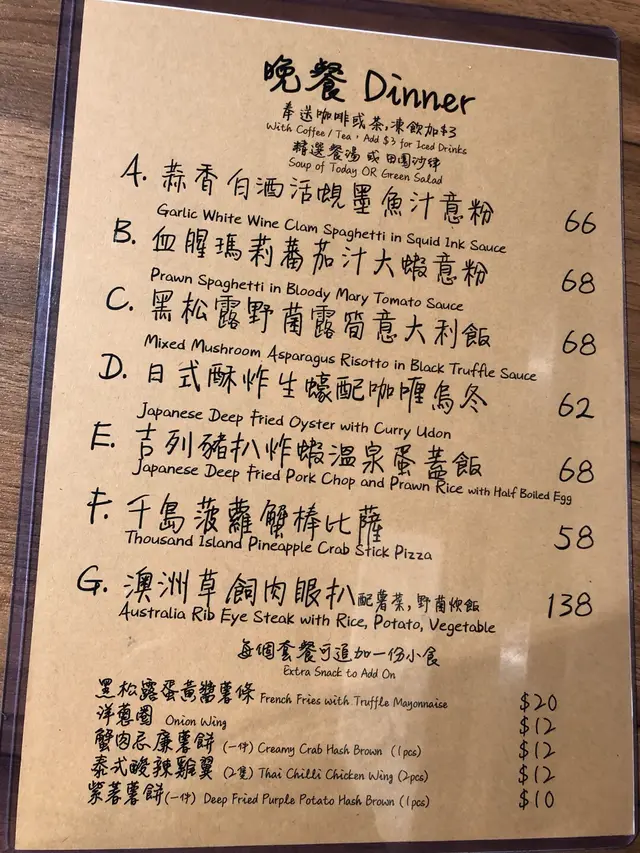 晚餐 Dinner
奉送咖啡或茶,凍飲加$3
With Coffee / Tea, Add $3 for Iced Drinks
精選餐湯 或 田園沙律
Soup of Today OR Green Salad
A. 蒜香白酒活蜆墨魚汁意粉 66
Garlic White Wine Clam Spaghetti in Squid Ink Sauce
B. 血腥瑪莉蕃茄汁大蝦意粉 68
Prawn Spaghetti in Bloody Mary Tomato Sauce
C. 黑松露野菌露筍意大利飯 68
Mixed Mushroom Asparagus Risotto in Black Truffle Sauce
D. 日式酥炸生蠔配咖喱烏冬 62
Japanese Deep Fried Oyster with Curry Udon
E. 吉列豬扒炸蝦溫泉蛋蓋飯 68
Japanese Deep Fried Pork Chop and Prawn Rice with Half Boiled Egg
F. 千島菠蘿蟹棒比薩 58
Thousand Island Pineapple Crab Stick Pizza
G. 澳洲草飼肉眼扒配薯菜,野菌炊飯 138
Australia Rib Eye Steak with Rice, Potato, Vegetable
每個套餐可追加一份小食
Extra Snack to Add On
黑松露蛋黃醬薯條 French Fries with Truffle Mayonnaise $20
洋蔥圈 Onion Wing $12
蟹肉忌廉薯餅 (一件) Creamy Crab Hash Brown (1pcs) $12
泰式酸辣雞翼 (2隻) Thai Chilli Chicken Wing (2pcs) $12
紫薯薯餅(一件) Deep Fried Purple Potato Hash Brown (1pcs) $10